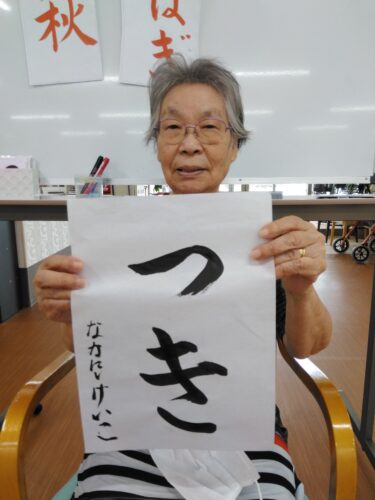 秋
はぎ
つき
なかにしけいこ